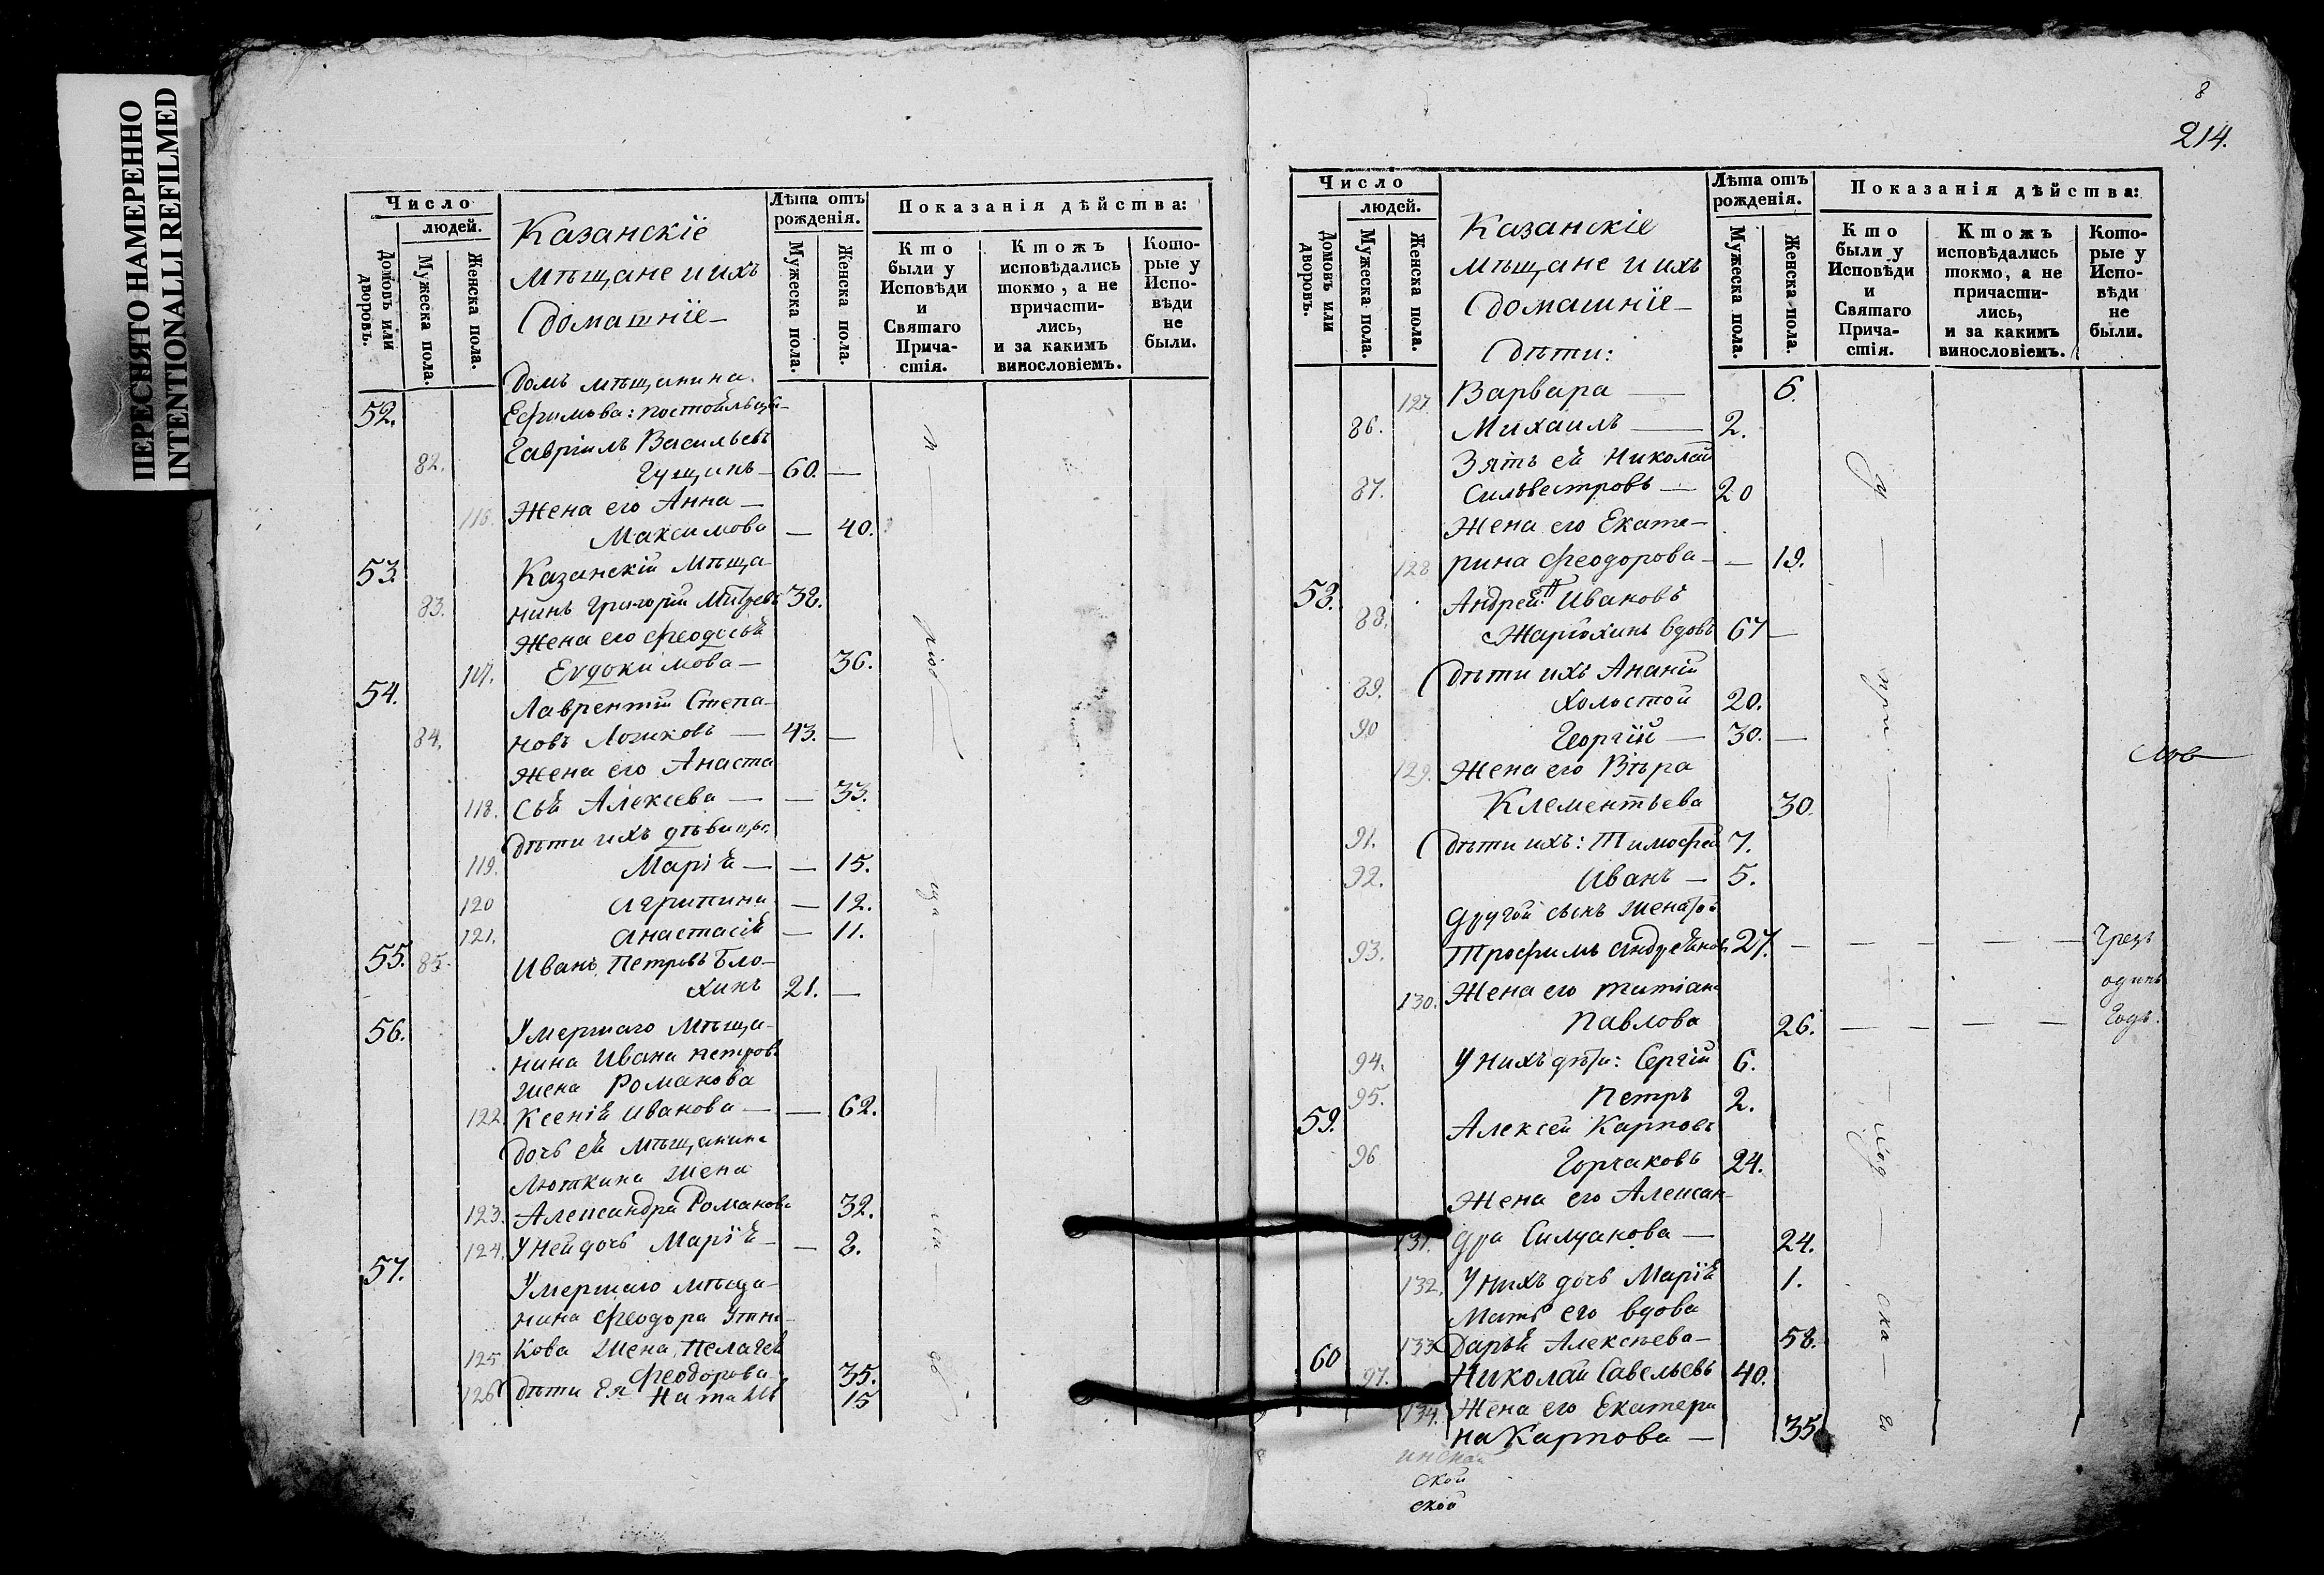 ПЕРЕСНЯТО НАМЕРЕННО
INTENTIONALLI REFILMED
Число
людей.
Домовъ или дворовъ.
Мужеска пола.
Женска пола.
Казанскіе
мѣщане и ихъ
домашніе
Лѣта отъ рожденія.
Мужеска пола.
Женска пола.
Показанія дѣйства:
Кто были у Исповѣди и Святаго Причастія.
Ктожъ исповѣдались токмо, а не причастились, и за какимъ винословіемъ.
Которые у Исповѣди не были.
Домъ мѣщанина
52. Ефимова: постойльцы
Гавріилъ Васильевъ
82. Гущинъ 60. —
Жена его Анна —
116. Максимова — 40.
53. Казанскій Мѣща-
83. нинъ Григорій 38.
Жена его Феодосья
117. Евдокимова — 36.
54. Лаврентій Степа-
84. новъ Логиковъ — 43. —
Жена его Анаста
118. сья Алексева — — 33.
дѣти ихъ дѣвицы:
119. Марія — — 15.
120 Агрипина — 12.
121. Анастасія — 11.
55. 85. Иванъ Петровъ Бло-
хинъ 21. —
56. Умершаго Мѣща-
нина Ивана Петрова
жена Романова
122. Ксенія Иванова — — 62.
Дочь ея мѣщанина
Люткина жена
123. Александра Романова 32.
124. У ней дочь Марія — — 8.
57. Умершаго мѣща-
нина Феодора Утни-
125. кова жена Пелагея
Феодорова 35.
126 дѣти Ея Наталья 15
8
214.
Число
людей.
Домовъ или дворовъ.
Мужеска пола.
Женска пола.
Казанскіе
мѣщане и ихъ
домашніе —
дѣти:
Лѣта отъ рожденія.
Мужеска пола.
Женска пола.
Показанія дѣйства:
Кто были у Исповѣди и Святаго Причастія.
Ктожъ исповѣдались токмо, а не причастились, и за какимъ винословіемъ.
Которые у Исповѣди не были.
127. Варвара — 6.
86. Михаилъ — 2.
Зять ея Николай
87. Сильвестровъ — 20
Жена его Екате-
128 рина Феодорова — — 19.
58. Андрей Ивановъ
88. Жарюхинъ вдовъ 67 —
89. дѣти ихъ Ананій
холостой 20.
90 Георгій — 30. —
129. Жена его Вѣра
Клементьева 30.
91. дѣти ихъ: Тимофей 7.
92. Иванъ — 5.
Другой сынъ женатой
93. Трофимъ Андреяновъ 27. — Чрезъ
130. Жена его Татіана одинъ
Павлова 26. — Годъ.
94. У нихъ дѣти: Сергій 6.
95. Петръ 2.
59. Алексей Карповъ
96 Горчаковъ 24.
Жена его Алексан-
131. дра Силуанова — 24.
132. У нихъ дочь Марія 1.
Мать его вдова
133 Дарья Алексѣева — 58.
60 97. Николай Савельевъ 40.
134. Жена его Екатери
на Карпова — 35
ской
ской